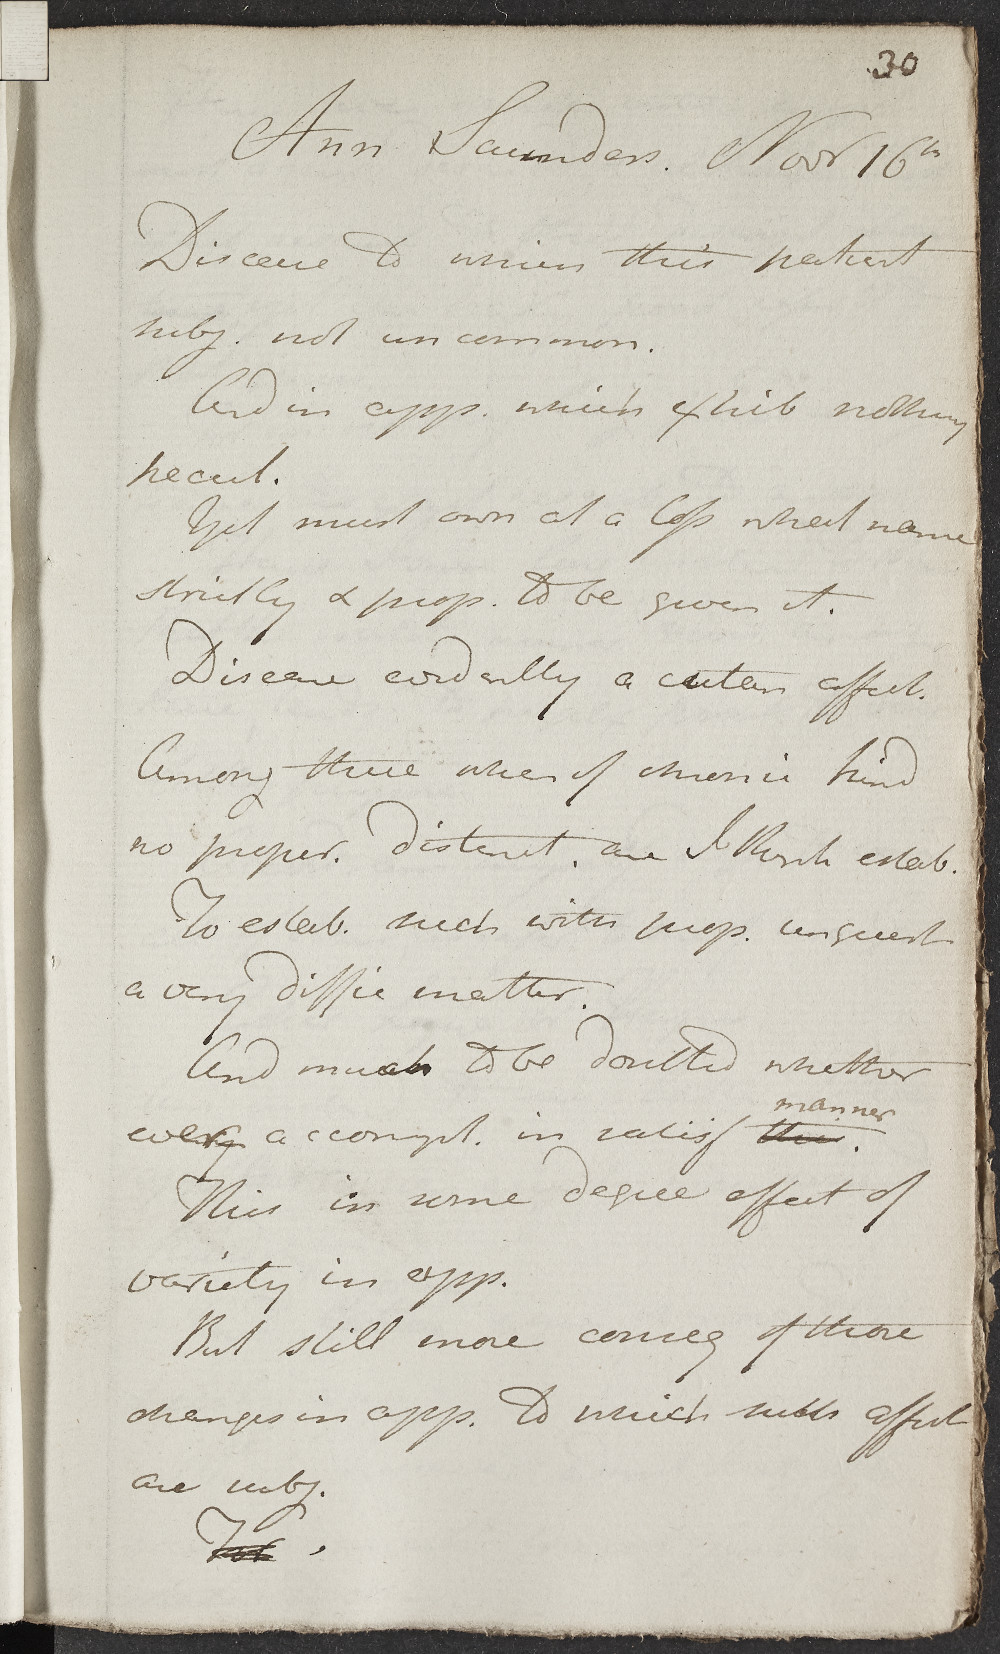 30
Ann Saunders. Novr 16th
Disease to which this patient
subj. not uncommon.
And in app. which exhib nothing
pecul.
Yet must own at a loss what name
strictly & prop. to be given it.
Disease evidently a cutan affect.
Among these when of chronic kind
no proper. distinct. are I think estab.
To estab. such with prop. unquest
a very diffic matter.
And much to be doubted whether
manner
ever accompl. in satisf this.
This in some degree effect of
variety in app.
But still more conseq of those
changes in app. to which such affect
are subj.
For